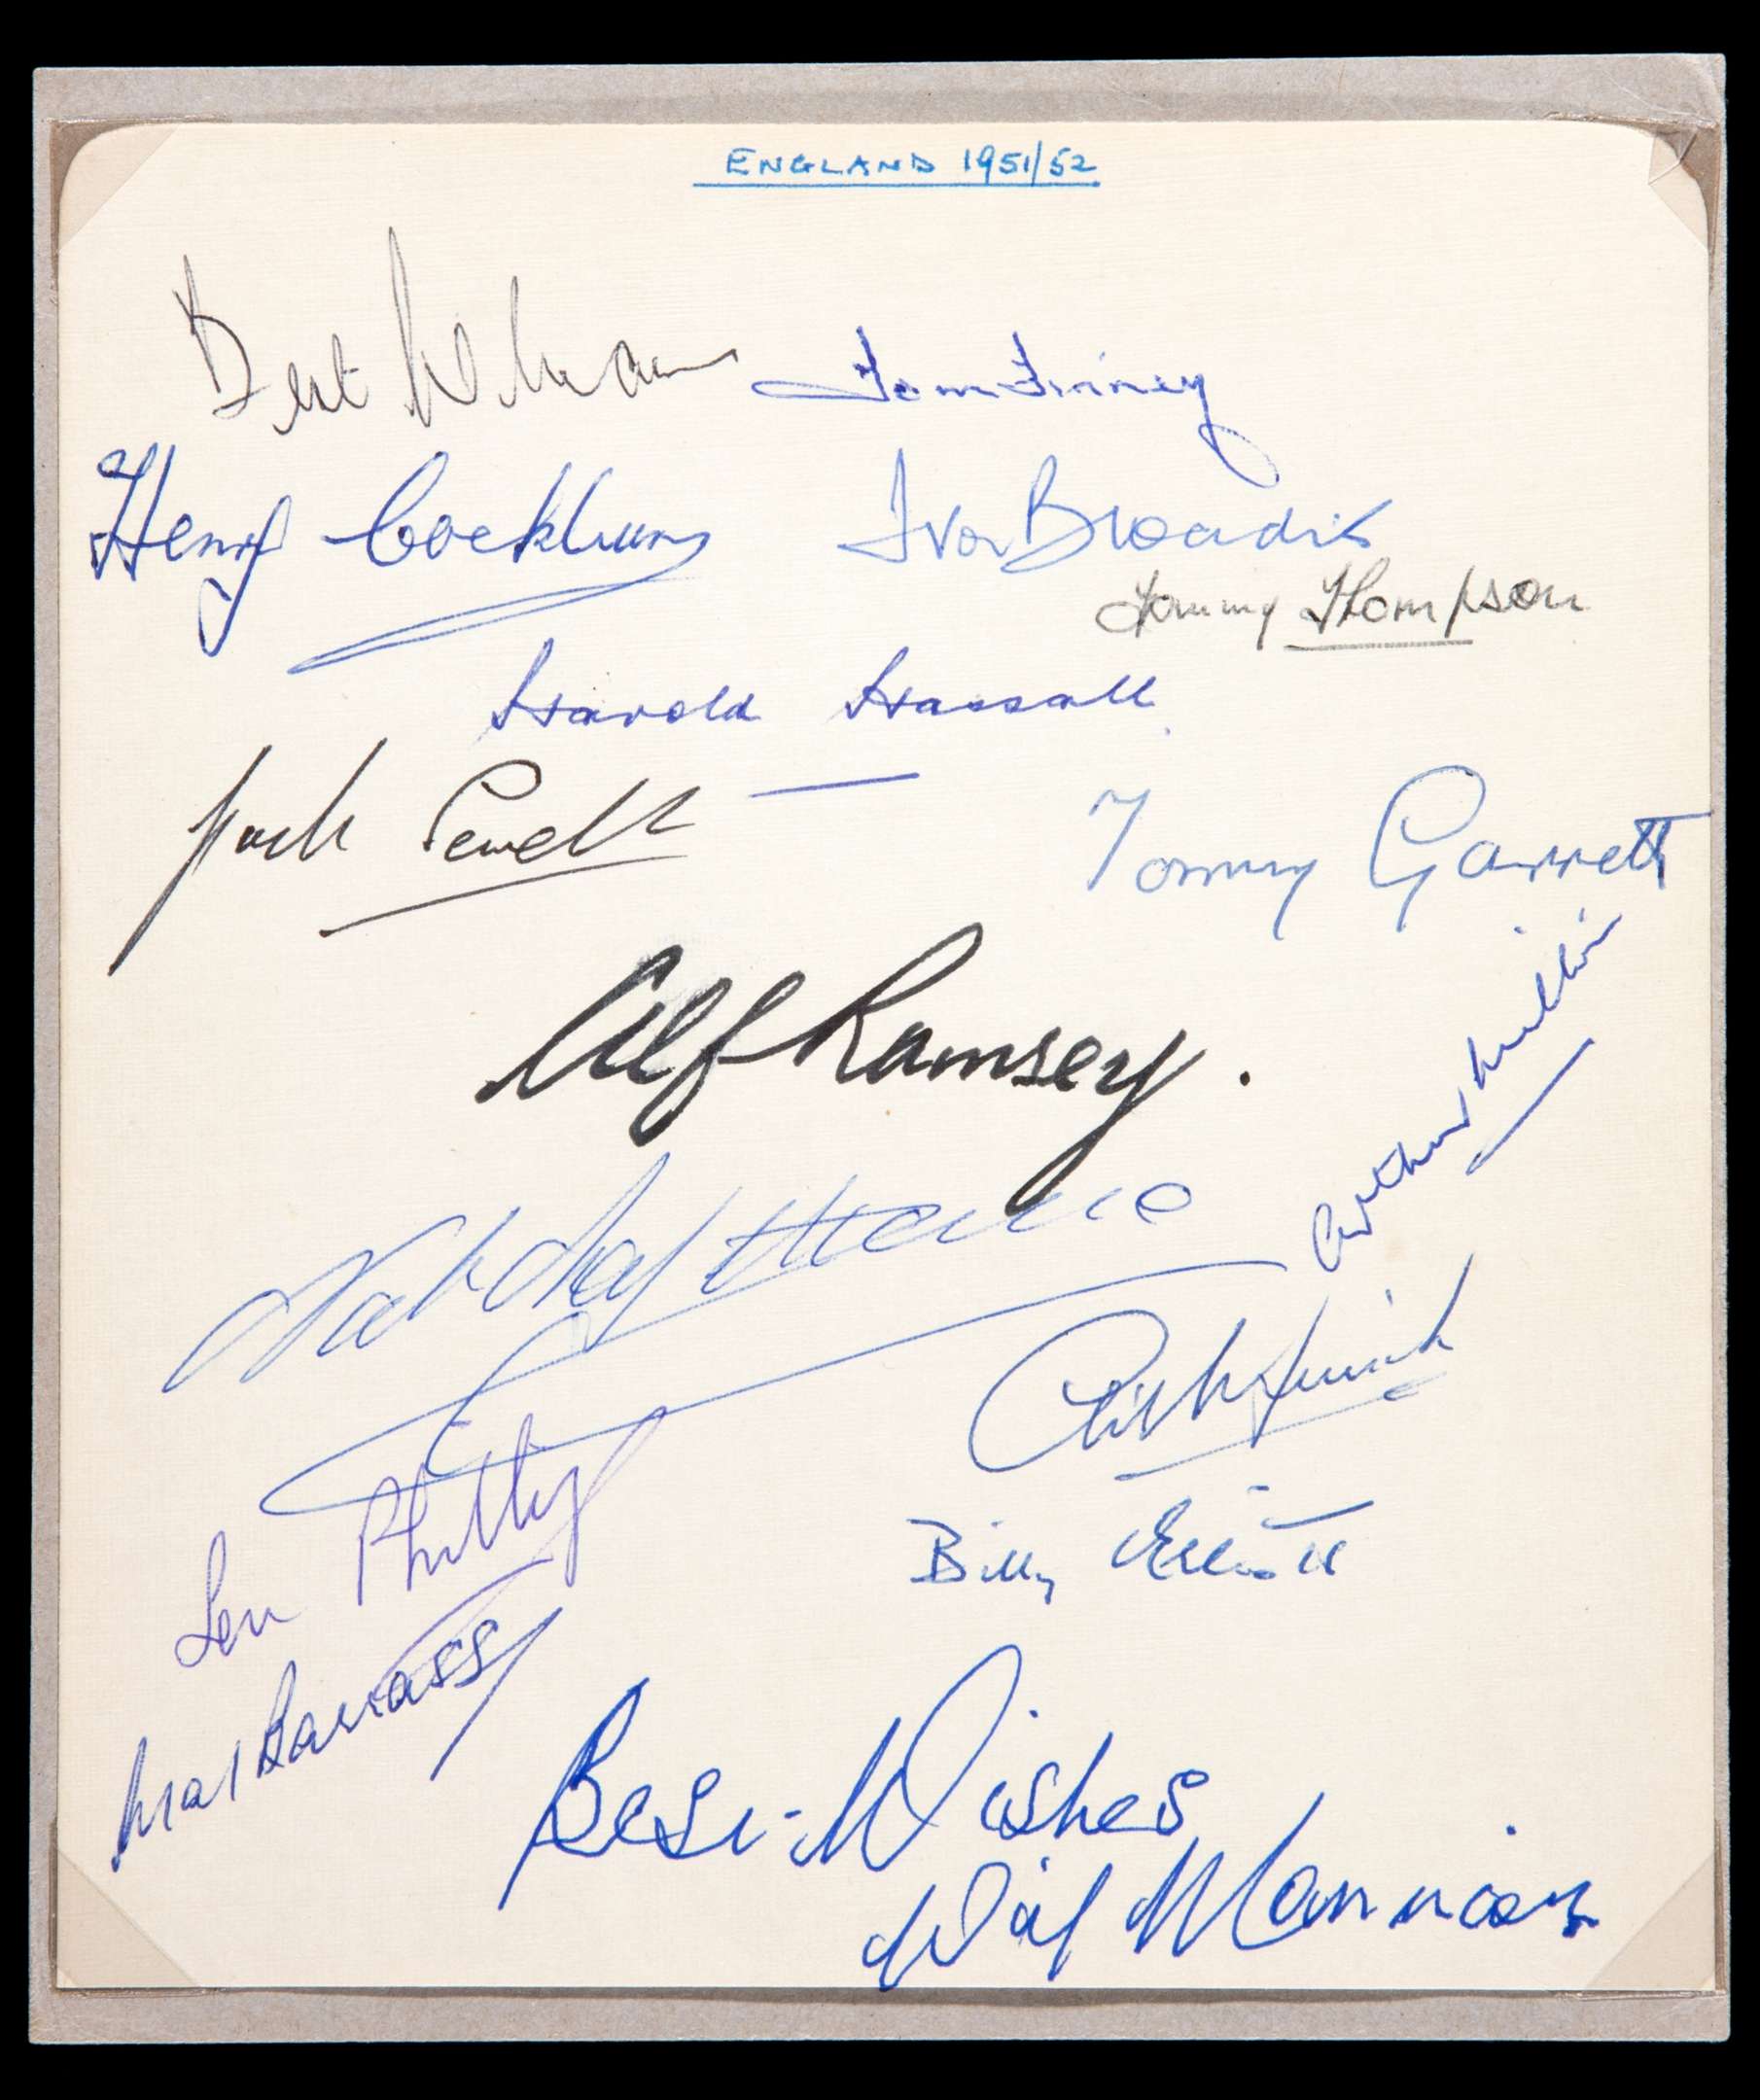 ENGLAND 1951/52
Bert Williams
Tom Finney
Henry Cockburn
Ivor Broadis
Tommy Thompson
Harold Hassall
Jack Sewell
Tommy Garrett
Alf Ramsey.
Arthur Milton
Nat Lofthouse
Les Phillips
Billy Elliott
Mal Barrass
Best Wishes
Wilf Mannion